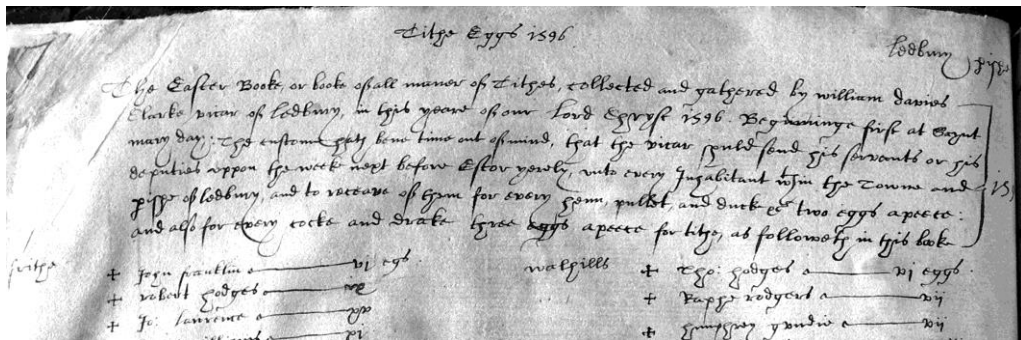 Tithe Eggs 1596
Ledbury pishe
The Easter Booke, or booke of all maner of Tithes, collected and gathered by william davies
Clarke vicar of ledbury, in this yeare of our Lord Chryst 1596. Beginninge first at Saynt
mary day: The custom hath bene time out of mind, that the vicar should send his servants or his
deputies uppon the week next before Estor yerely, unto every Inhabitant wthin the Towne and
pishe of ledbury, and to receave of them for every henn, pullet, and duck &c two eggs a peece:
and also for every cocke and drake three eggs a peece for tithe, as followeth in this booke
frithe
+ John franklin vi egs.
+ robert hodges ix
+ Jo: Laurence xx
xi
walhills
+ Tho: hodges vj eggs.
+ Raphe rodgers vii
+ humphrey vii